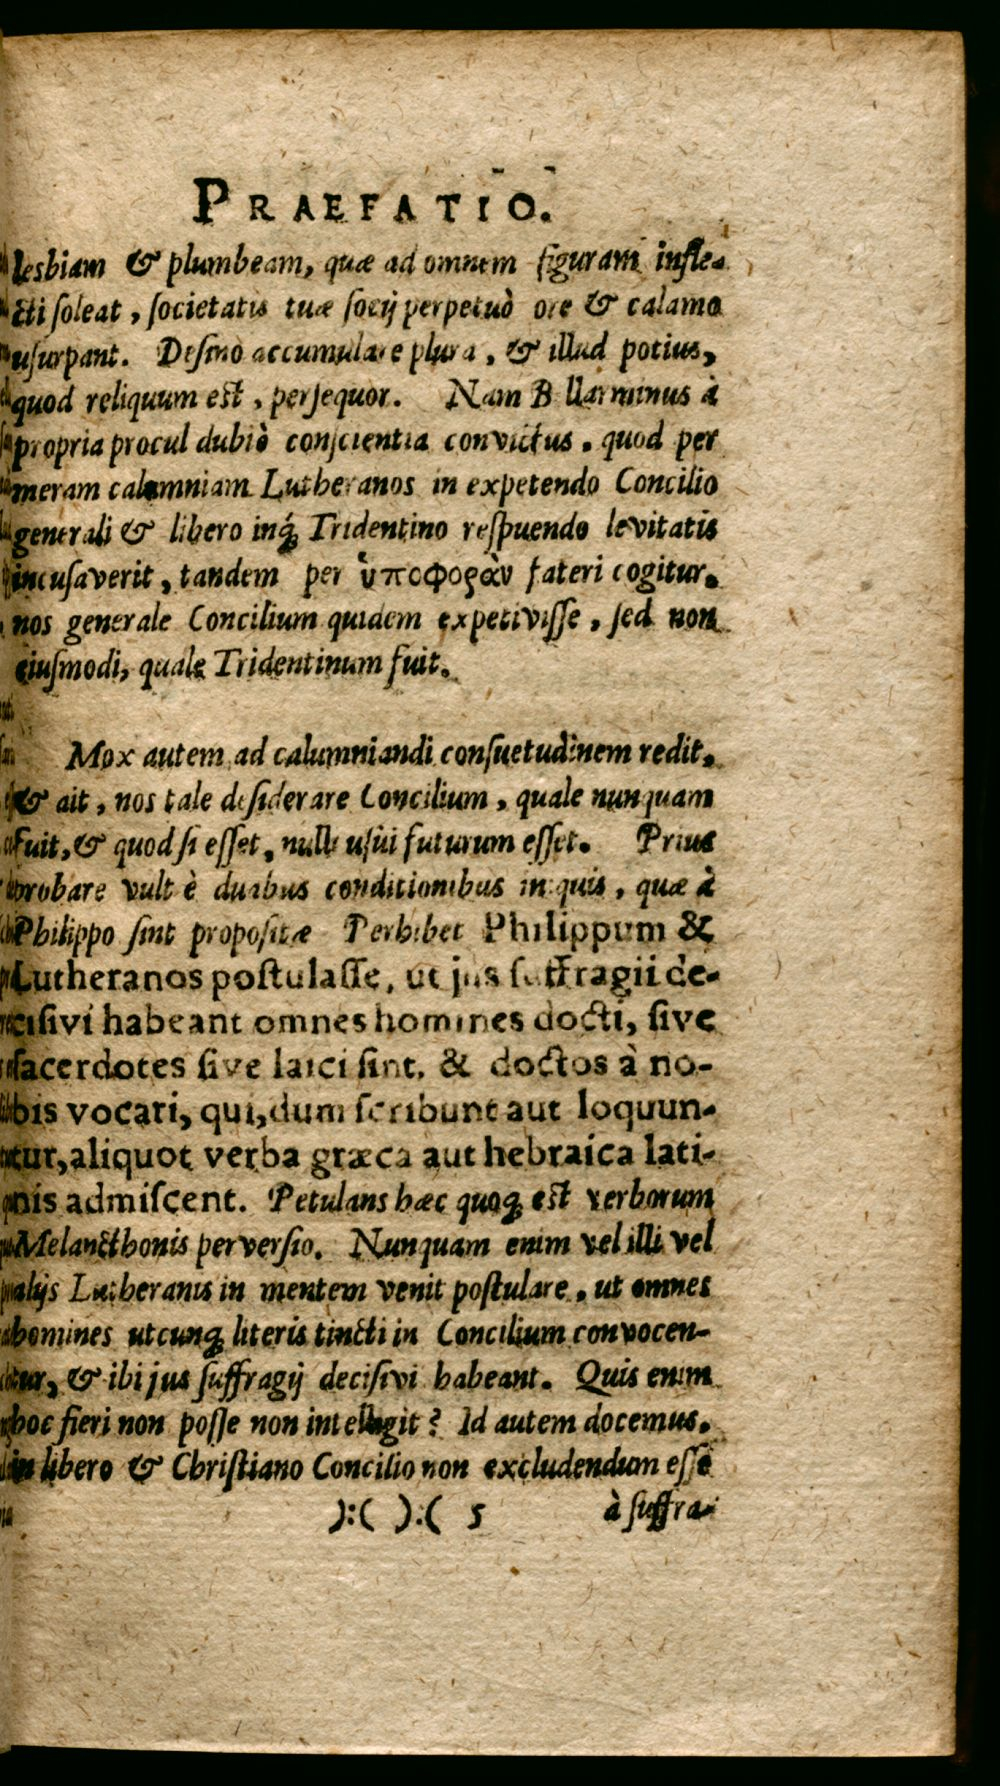 PRAEFATIO.
lesbiam & plumbeam, quæ ad omnem figuram infle-
cti ſoleat, ſocietatis tuæ ſocij perpetuò ore & calamo
uſurpant. Deſino accumulare plura, & illud potius,
quod reliquum eſt, perſequor. Nam B llarminus à
propria procul dubiò conſcientia convictus, quod per
meram calumniam Lutheranos in expetendo Concilio
generali & libero inq́; Tridentino reſpuendo levitatis
incuſaverit, tandem per ὑποφορὰν fateri cogitur,
nos generale Concilium quidem expetiviſſe, ſed non
eiuſmodi, quale Tridentinum fuit.
Mox autem ad calumniandi conſuetudinem redit,
& ait, nos tale deſiderare Concilium, quale nunquam
fuit, & quod ſi eſſet, nulli uſui futurum eſſet. Prius
probare vult è duabus conditionibus iniquis, quæ à
Philippo ſint propoſitæ Perhibet Philippum &
Lutheranos poſtulaſſe, ut jus ſuffragii de-
ciſivi habeant omnes homines docti, ſive
ſacerdotes ſive laici ſint, & doctos à no-
bis vocari, qui, dum ſcribunt aut loquun-
tur, aliquot verba græca aut hebraica lati-
nis admiſcent. Petulans hæc quoq; eſt verborum
Melancthonis perverſio. Nunquam enim vel illi vel
alijs Lutheranis in mentem venit poſtulare, ut omnes
homines utcunq; literis tincti in Concilium convocen-
tur, & ibi jus ſuffragij deciſivi habeant. Quis enim
hoc fieri non poſſe non intelligit? Id autem docemus,
in libero & Chriſtiano Concilio non excludendum eſſe
):( ):( 5 à ſuffra-